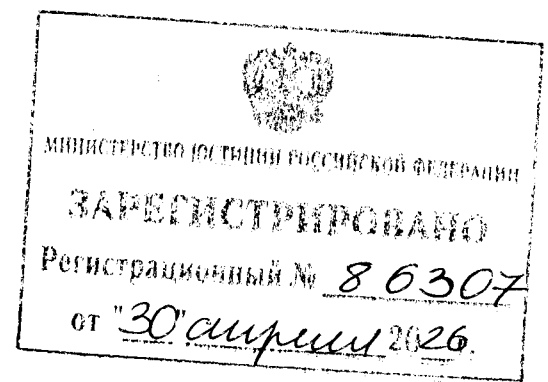 МИНИСТЕРСТВО ЮСТИЦИИ РОССИЙСКОЙ ФЕДЕРАЦИИ
ЗАРЕГИСТРИРОВАНО
Регистрационный № 86307
от "30" апреля 2026.